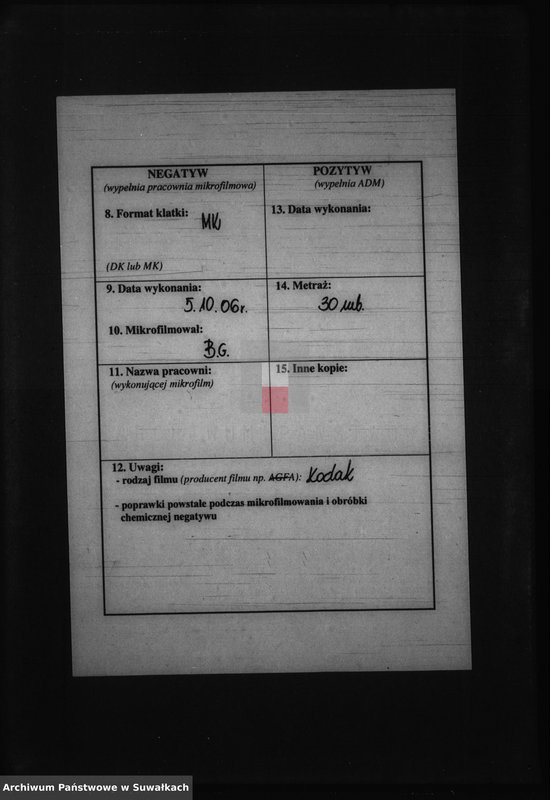 NEGATYW
(wypełnia pracownia mikrofilmowa)
8. Format klatki: MK
(DK lub MK)
9. Data wykonania:
5.10.06r.
10. Mikrofilmował:
B.G.
11. Nazwa pracowni:
(wykonującej mikrofilm)
POZYTYW
(wypełnia ADM)
13. Data wykonania:
14. Metraż:
30 mb.
15. Inne kopie:
12. Uwagi:
- rodzaj filmu (producent filmu np. AGFA): Kodak
- poprawki powstałe podczas mikrofilmowania i obróbki
chemicznej negatywu
Archiwum Państwowe w Suwałkach